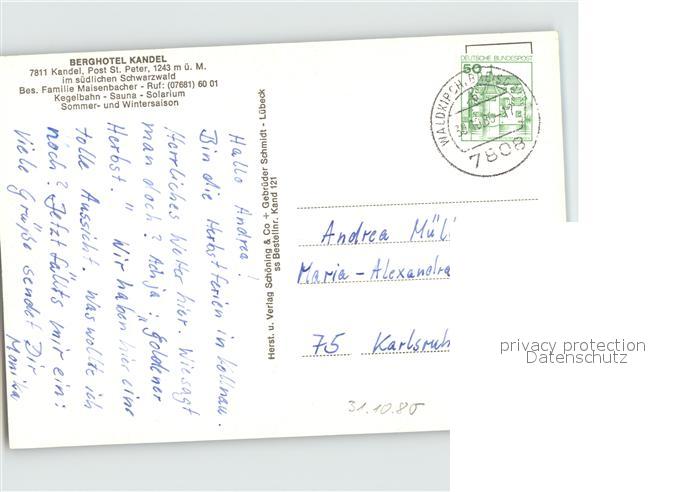 BERGHOTEL KANDEL
7811 Kandel, Post St. Peter, 1243 m ü. M.
im südlichen Schwarzwald
Bes. Familie Maisenbacher - Ruf: (07681) 60 01
Kegelbahn - Sauna - Solarium
Sommer- und Wintersaison
Hallo Andrea!
Bin die Herbstferien in Kollnau.
Herrliches Wetter hier. Wie sagt
man doch? Ach ja: „Goldener
Herbst." Wir haben hier eine
tolle Aussicht. Was wollte ich
noch? Jetzt fällts mir ein:
Viele Grüße sendet Dir
Monika
Herst. u. Verlag Schöning & Co + Gebrüder Schmidt - Lübeck
ss Bestellnr. Kand 121
DEUTSCHE BUNDESPOST
50
WALDKIRCH
7808
Andrea Mül
Maria-Alexandra
75 Karlsruh
31.10.80
privacy protection
Datenschutz